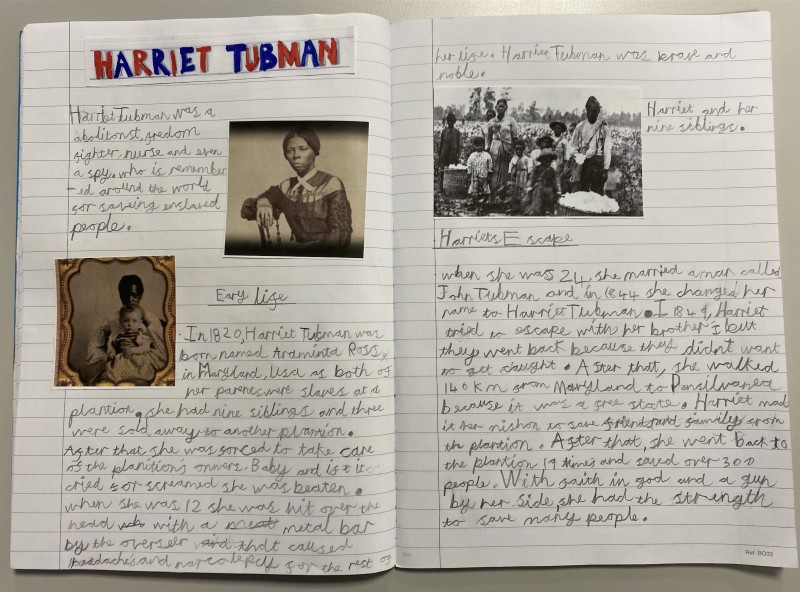 HARRIET TUBMAN
Harriet Tubman was a
abolitonst, fredom
fighter, nurse and even
a spy. who is remember
-ed around the world
for saveing enslaved
people.
Eary life
In 1820, Harriet Tubman was
born named Araminta Ross,
in Maryland, Usa as both of
her parents were slaves at a
plantion, she had nine siblings and three
were sold away to another plantion.
After that, she was forced to take care
of the planition's onwers. Baby and if it
cried or screamed she was beaten.
when she was 12 she was hit over the
head with a metal bar
by the overseir and that caused
headaches and narcolepcy for the rest of
her life. Harriet Tubman was brave and
noble.
Harriet and her
nine siblings.
Harriets Escape
when she was 24, she married a man called
John Tubman and in 1844 she changed her
name to Harriet Tubman. I 1849, Harriet
tried to escape with her brother's but
they went back because they didn't want
to get caught. After that, she walked
140km from Maryland to Pensilvaned
because it was a free state. Harriet mad
it her mishon to save friends and family from
the plantion. After that, she went back to
the plantion 19 times and saved over 300
people. With faith in god and a gun
by her side, she had the strength
to save many people.
Ref: BO33